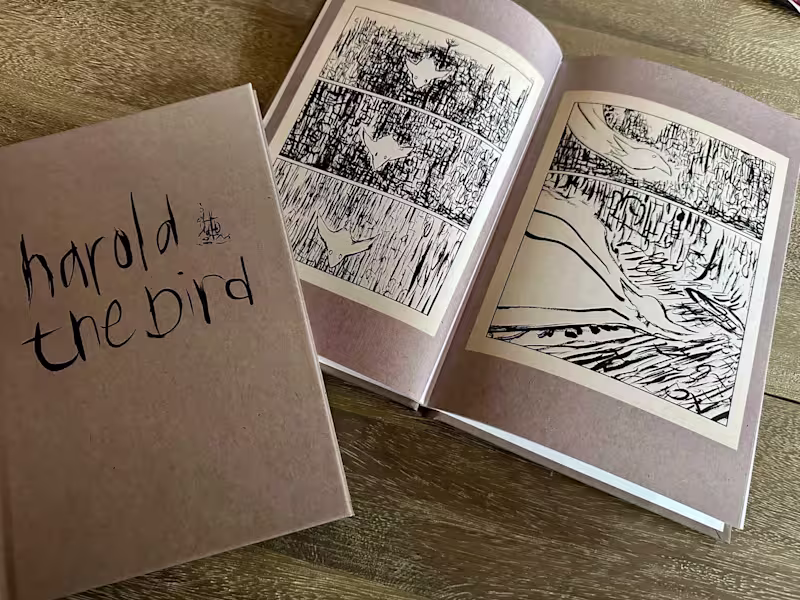 harold
the bird